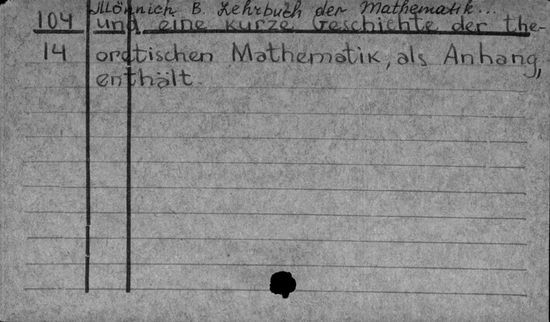 Mönnich B. Lehrbuch der Mathematik...
104 und eine kurze Geschichte der the-
14 oretischen Mathematik, als Anhang,
enthält.